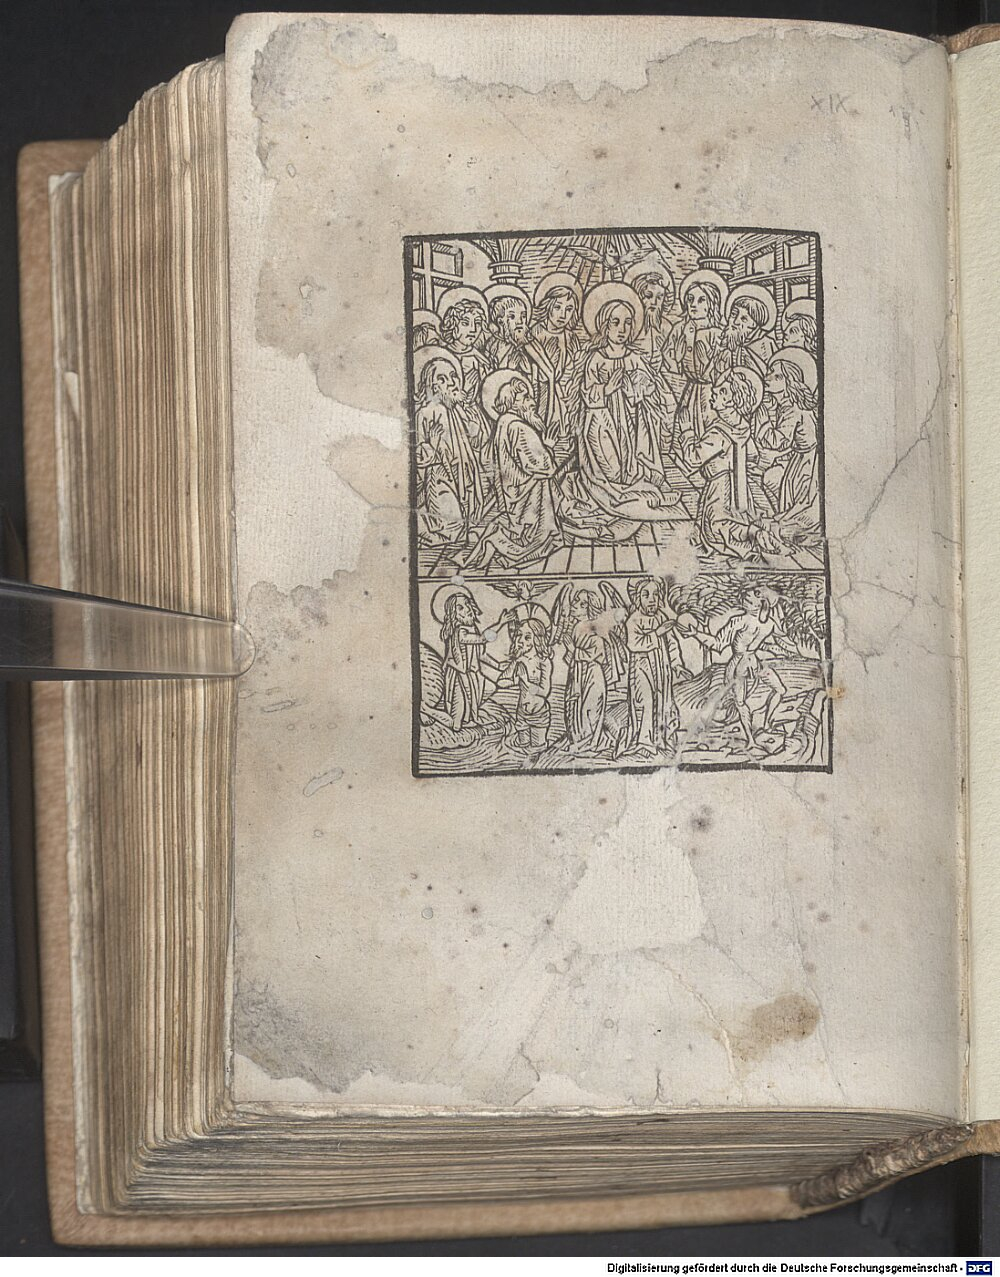 XIX
Digitalisierung gefördert durch die Deutsche Forschungsgemeinschaft - DFG